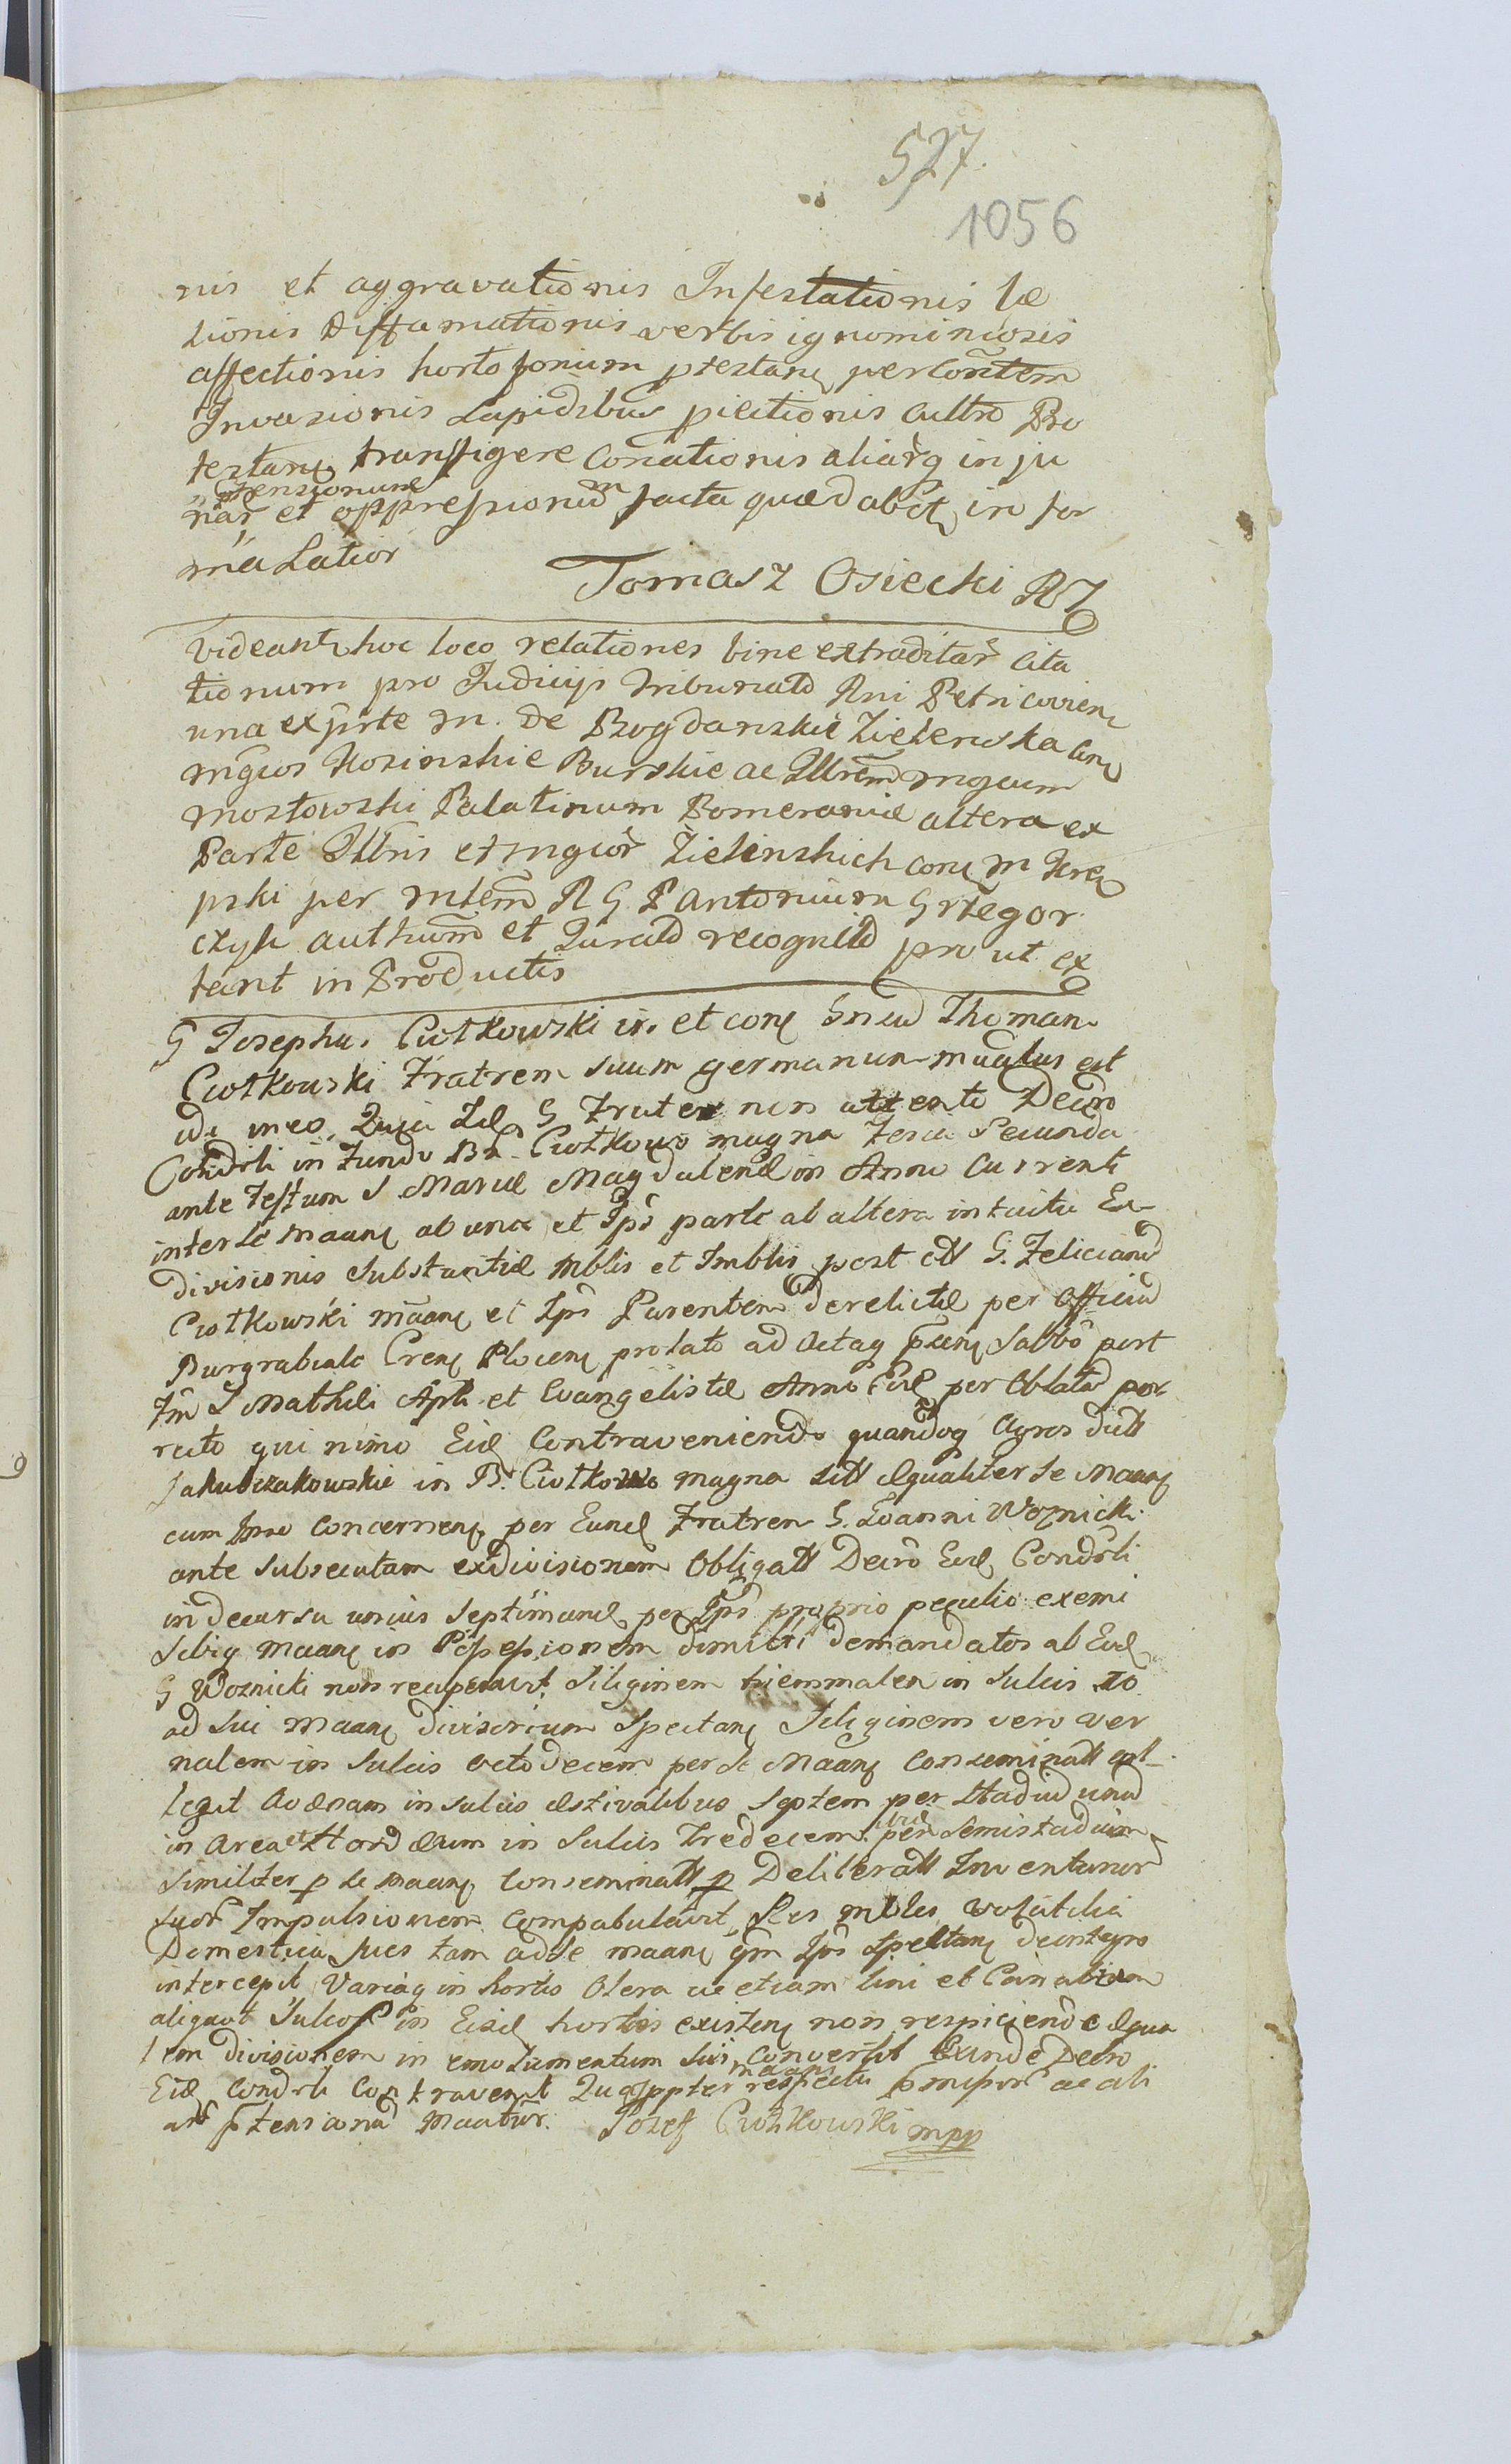 527.
1056
nis et aggravationis Infestationis læ
tionis Diffamationis verbis ignominiosis
affectionis hortofonium ptestanς per Cõntem
Invasionis Lapidibus pictionis Cultro Pro
testanς transfigere Conationis aliarq inju
ptensionumq
riar et oppressionum facta quædabit in for
ma Latior
Tomasz Osiecki RJ
Videant hoc loco relationes bine extraditar Cita
tionum pro Judicijs Tribunald Rni Petricovienς
una exprte M. de Bogdanskie Zielenska conς
mgcos Kosinskie Burskie ac Illrem mgcum
Mostowski Palatinum Pomeraniæ altera ex
Parte Illris et mgcor Zielinskich conς M
pski per mtem R G P Antonium Grzegor
czyk authum et Jurald recognitd prout ex
tant in Productis
G Josephus Ciotkowski in. et conς Gnsd Thoman
Ciotkowski Fratrem suum germanum mãtus est
idq in eo. Quia Idς G Frater non attento Decro
Condrli in Fundo Bn. Ciotkowo magna Feria Secunda
ante Festum S Mariæ Magdalenæ in Anno Currenti
inter se Maanς ab una et Ips parte ab altera intuitu Ex
divisionis substantiæ Mblis et Imblis post ctt G. Felicianũ
Ciotkowski maanς et Ips Parentem derelictæ per Officiũ
Burgrabiale Crenς Plocenς prolato ad Actaq prnς Sabbo post
Fm S Mathæi Apli et Evangelistæ Anno Eodς per Oblatã por
recto qui nimo Eidς Contraveniendo quandoq Agros dictt
Jakubczakowskie in B. Ciotkowo magna sitt æqualiter se Maanς
cum Ipso concernenς per Eundς Fratrem G. Joanni Woznicki
ante subsecutam exdivisionem Obligatt Decro Eodς Condrli
in decursu unius Septimanæ per Ips proprio peculio exemi
Sibiq Maanς in Possessionem dimitti demandatos ab Eodς
G Woznicki non recuperavit. Siliginem hiemmalem in Sulcis 10
ad sui maanς divisorium spectanς Siliginem vero ver
nalem in Sulcis octodecem per se Maanς Conseminatt col
legit Avænam in sulcis æstivalibus septem per Stadiũ unũ
in area et Hordæum in Sulcis Tredecem per Semistadium
similiter p se maanς conseminatt p Deliberatt Inventur
suor Impulsionem Compabulavit, Res mbles Volatilia
Domestica, Sues tam ad se maanς qm Ips spectanς deintegro
intercepit Variaq in hortis Olera ac etiam lini et Canabium
aliquot Sulcos in Eisdς hortis existenς non respiciendo Æqua
lem divisionem in emolumentum sui convertit Eunde Decro
maanς
Eodς Condrli Contravenit Quappter respectu pmissor ac ali
ar ptensionũ Maatur. Jozef Ciotkowski mpp